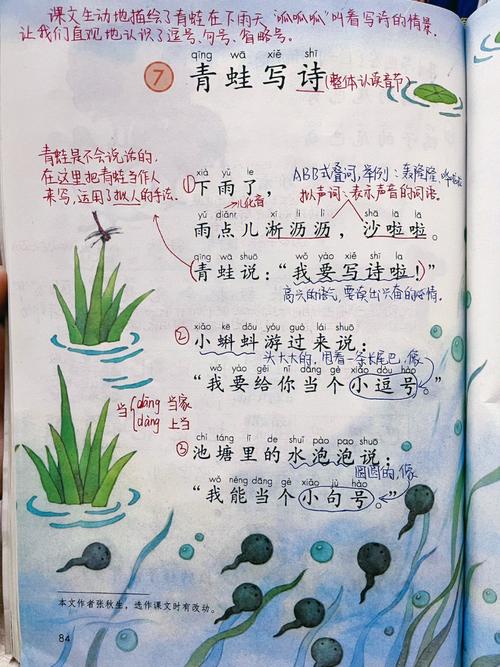 课文生动地描绘了青蛙在下雨天"呱呱呱"叫着写诗的情景,
让我们直观地认识了逗号、句号、省略号。
qīng wā xiě shī
7 青蛙写诗(整体认读音节)
青蛙是不会说话的,
在这里把青蛙当作人
来写,运用了拟人的手法。
xià yǔ le
①下雨了,
儿化音
ABB式叠词,举例:轰隆隆、哗啦啦
拟声词:表示声音的词语。
yǔ diǎnr xī lì lì shā lā lā
雨点儿淅沥沥,沙啦啦。
qīng wā shuō wǒ yào xiě shī la
青蛙说:“我要写诗啦!”
高兴的语气,要读出兴奋的心情。
xiǎo kē dǒu yóu guò lái shuō
②小蝌蚪游过来说:
头大大的,甩着一条长尾巴,像
wǒ yào gěi nǐ dāng gè xiǎo dòu hào
“我要给你当个小逗号。”
当 dāng 当家
dàng 上当
chí táng lǐ de shuǐ pào pao shuō
③池塘里的水泡泡说:
圆圆的,像
wǒ néng dāng gè xiǎo jù hào
“我能当个小句号。”
本文作者张秋生,选作课文时有改动。
84